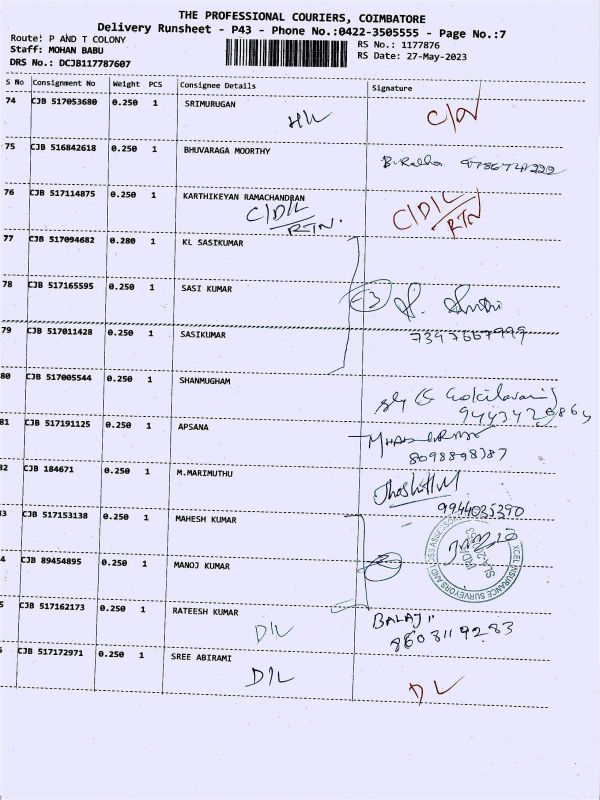 THE PROFESSIONAL COURIERS, COIMBATORE
Delivery Runsheet - P43 - Phone No.:0422-3505555 - Page No.:7
Route: P AND T COLONY
RS No.: 1177876
Staff: MOHAN BABU
RS Date: 27-May-2023
DRS No.: DCJB117787607
S No Consignment No Weight PCS Consignee Details Signature
74 CJB 517053680 0.250 1 SRIMURUGAN
75 CJB 516842618 0.250 1 BHUVARAGA MOORTHY
76 CJB 517114875 0.250 1 KARTHIKEYAN RAMACHANDRAN
C/D/L C/D/L
RTN. RTN
77 CJB 517094682 0.280 1 KL SASIKUMAR
78 CJB 517165595 0.250 1 SASI KUMAR
79 CJB 517011428 0.250 1 SASIKUMAR
7397667999
80 CJB 517005544 0.250 1 SHANMUGHAM
81 CJB 517191125 0.250 1 APSANA
8098898387
82 CJB 184671 0.250 1 M.MARIMUTHU
9944035390
3 CJB 517153138 0.250 1 MAHESH KUMAR
4 CJB 89454895 0.250 1 MANOJ KUMAR
5 CJB 517162173 0.250 1 RATEESH KUMAR
BALAJI
8608119283
D/L
CJB 517172971 0.250 1 SREE ABIRAMI
D/L DL